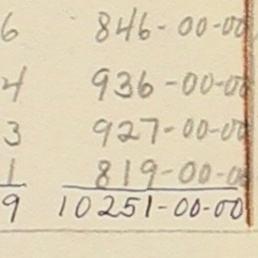 6 846-00-00
4 936-00-00
3 927-00-00
1 819-00-00
9 10251-00-00